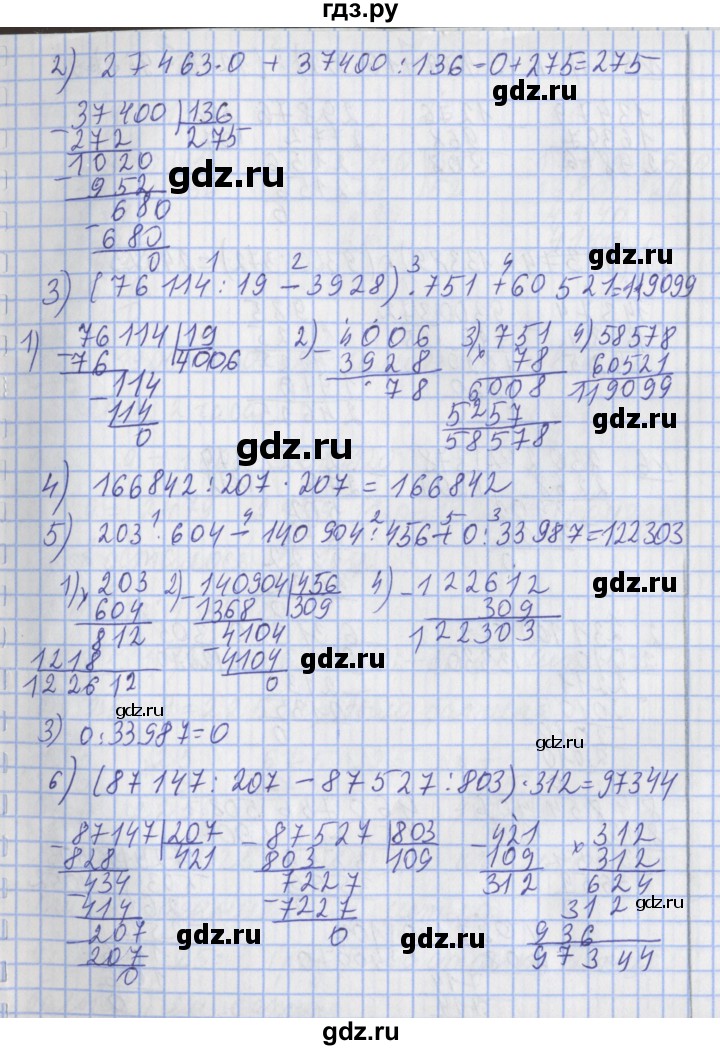 гдз.ру
2) 27463·0 + 37400:136=0+275=275
gdz.ru
37400 |136
-272 275
1020
gdz.ru
-952
680
-680
0
gdz.ru
1 2 3 4
3) (76114:19-3928)·751+60521=119099
1) 76114 |19 2) 4006 3) 751 4) 58578
-76 4006 -3928 × 78 60521
-114 78 6008 119099
114 5257 gdz.ru
0 gdz.ru 58578
4) 166842:207·207=166842
1 4 2 5 3
5) 203·604-140904:456+0:33987=122303
1) 203 2) 140904 |456 4) -122612 gdz.ru
×604 -1368 309 309
812 4104 122303
1218 -4104 gdz.ru
122612 0
gdz.ru
3) 0:33987=0 gdz.ru
6) (87147:207-87527:803)·312=97344
-87147 |207 -87527 |803 -421 × 312
828 421 803 109 109 312
434 7227 312 624
-414 -7227 312 gdz.ru
-207 0 936
207 gdz.ru gdz.ru 97344
0
gdz.ru